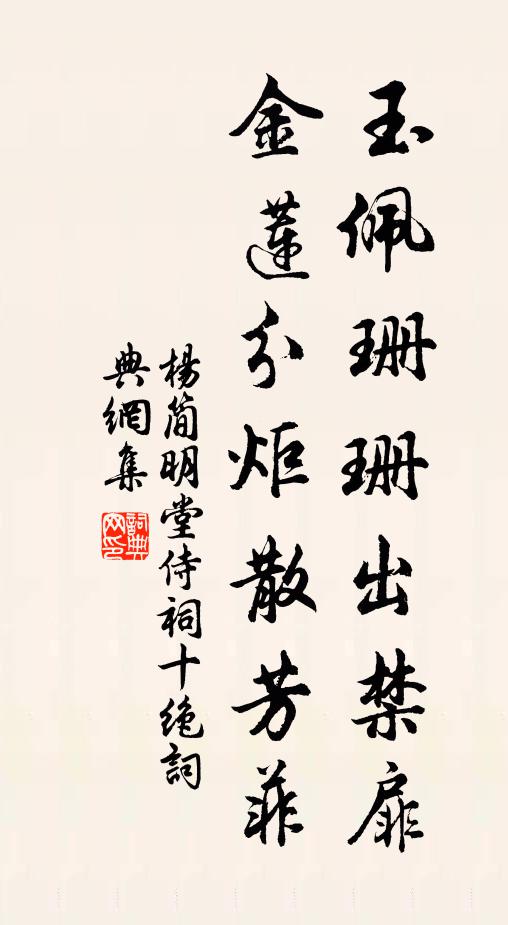 玉佩珊珊出禁扉
金蓮分炬散芳菲
楊簡明堂侍祠十绝詞
典網集
詞典
网印